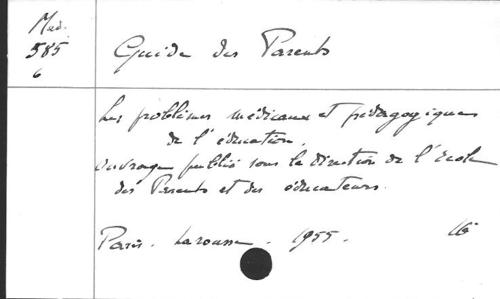 Med.
585
6
Guide des Parents
Les problèmes médicaux et pédagogiques
de l'éducation.
Ouvrage publié sous la direction de l'école
des Parents et des éducateurs.
Paris. Larousse. 1955. 16°